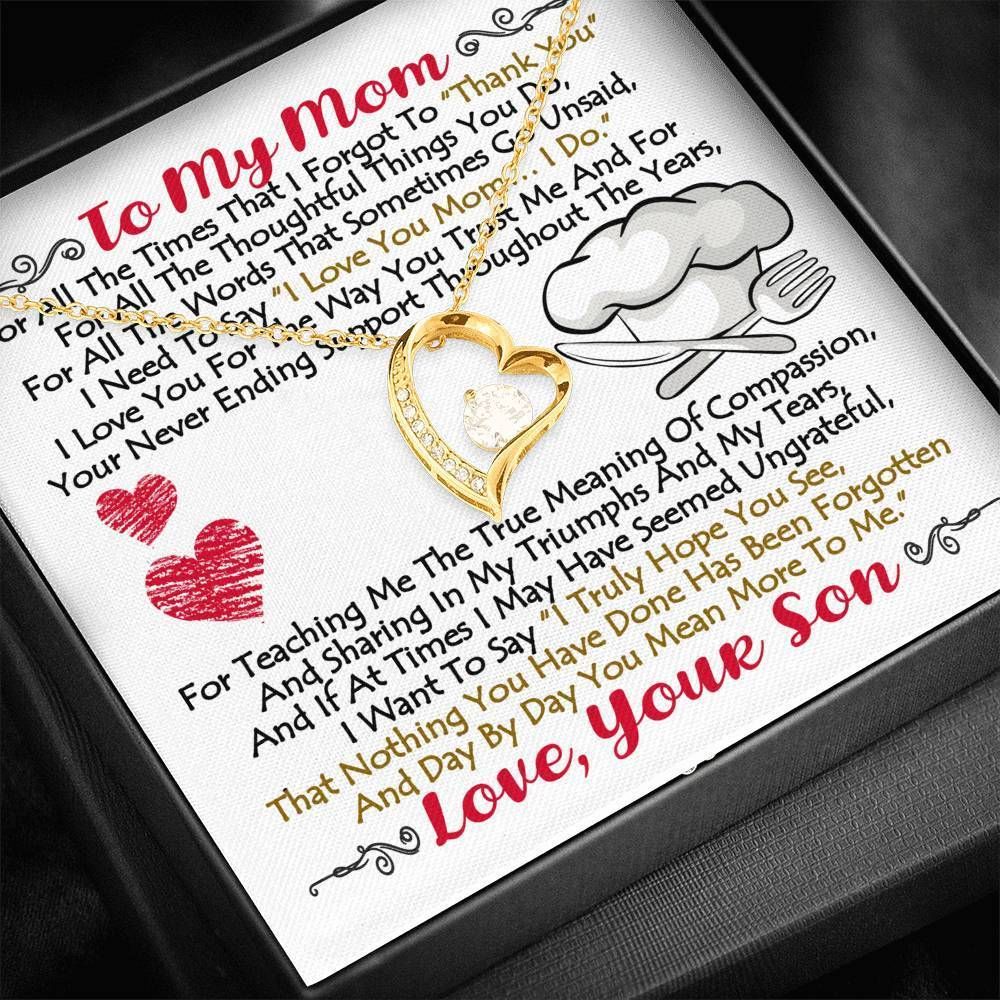 To My Mom
For All The Times That I Forgot To "Thank You"
For All The Thoughtful Things You Do,
For All The Words That Sometimes Go Unsaid,
I Need To Say "I Love You Mom... I Do."
I Love You For The Way You Trust Me And For
Your Never Ending Support Throughout The Years,
For Teaching Me The True Meaning Of Compassion,
And Sharing In My Triumphs And My Tears,
And If At Times I May Have Seemed Ungrateful,
I Want To Say "I Truly Hope You See,
That Nothing You Have Done Has Been Forgotten
And Day By Day You Mean More To Me."
Love, Your Son